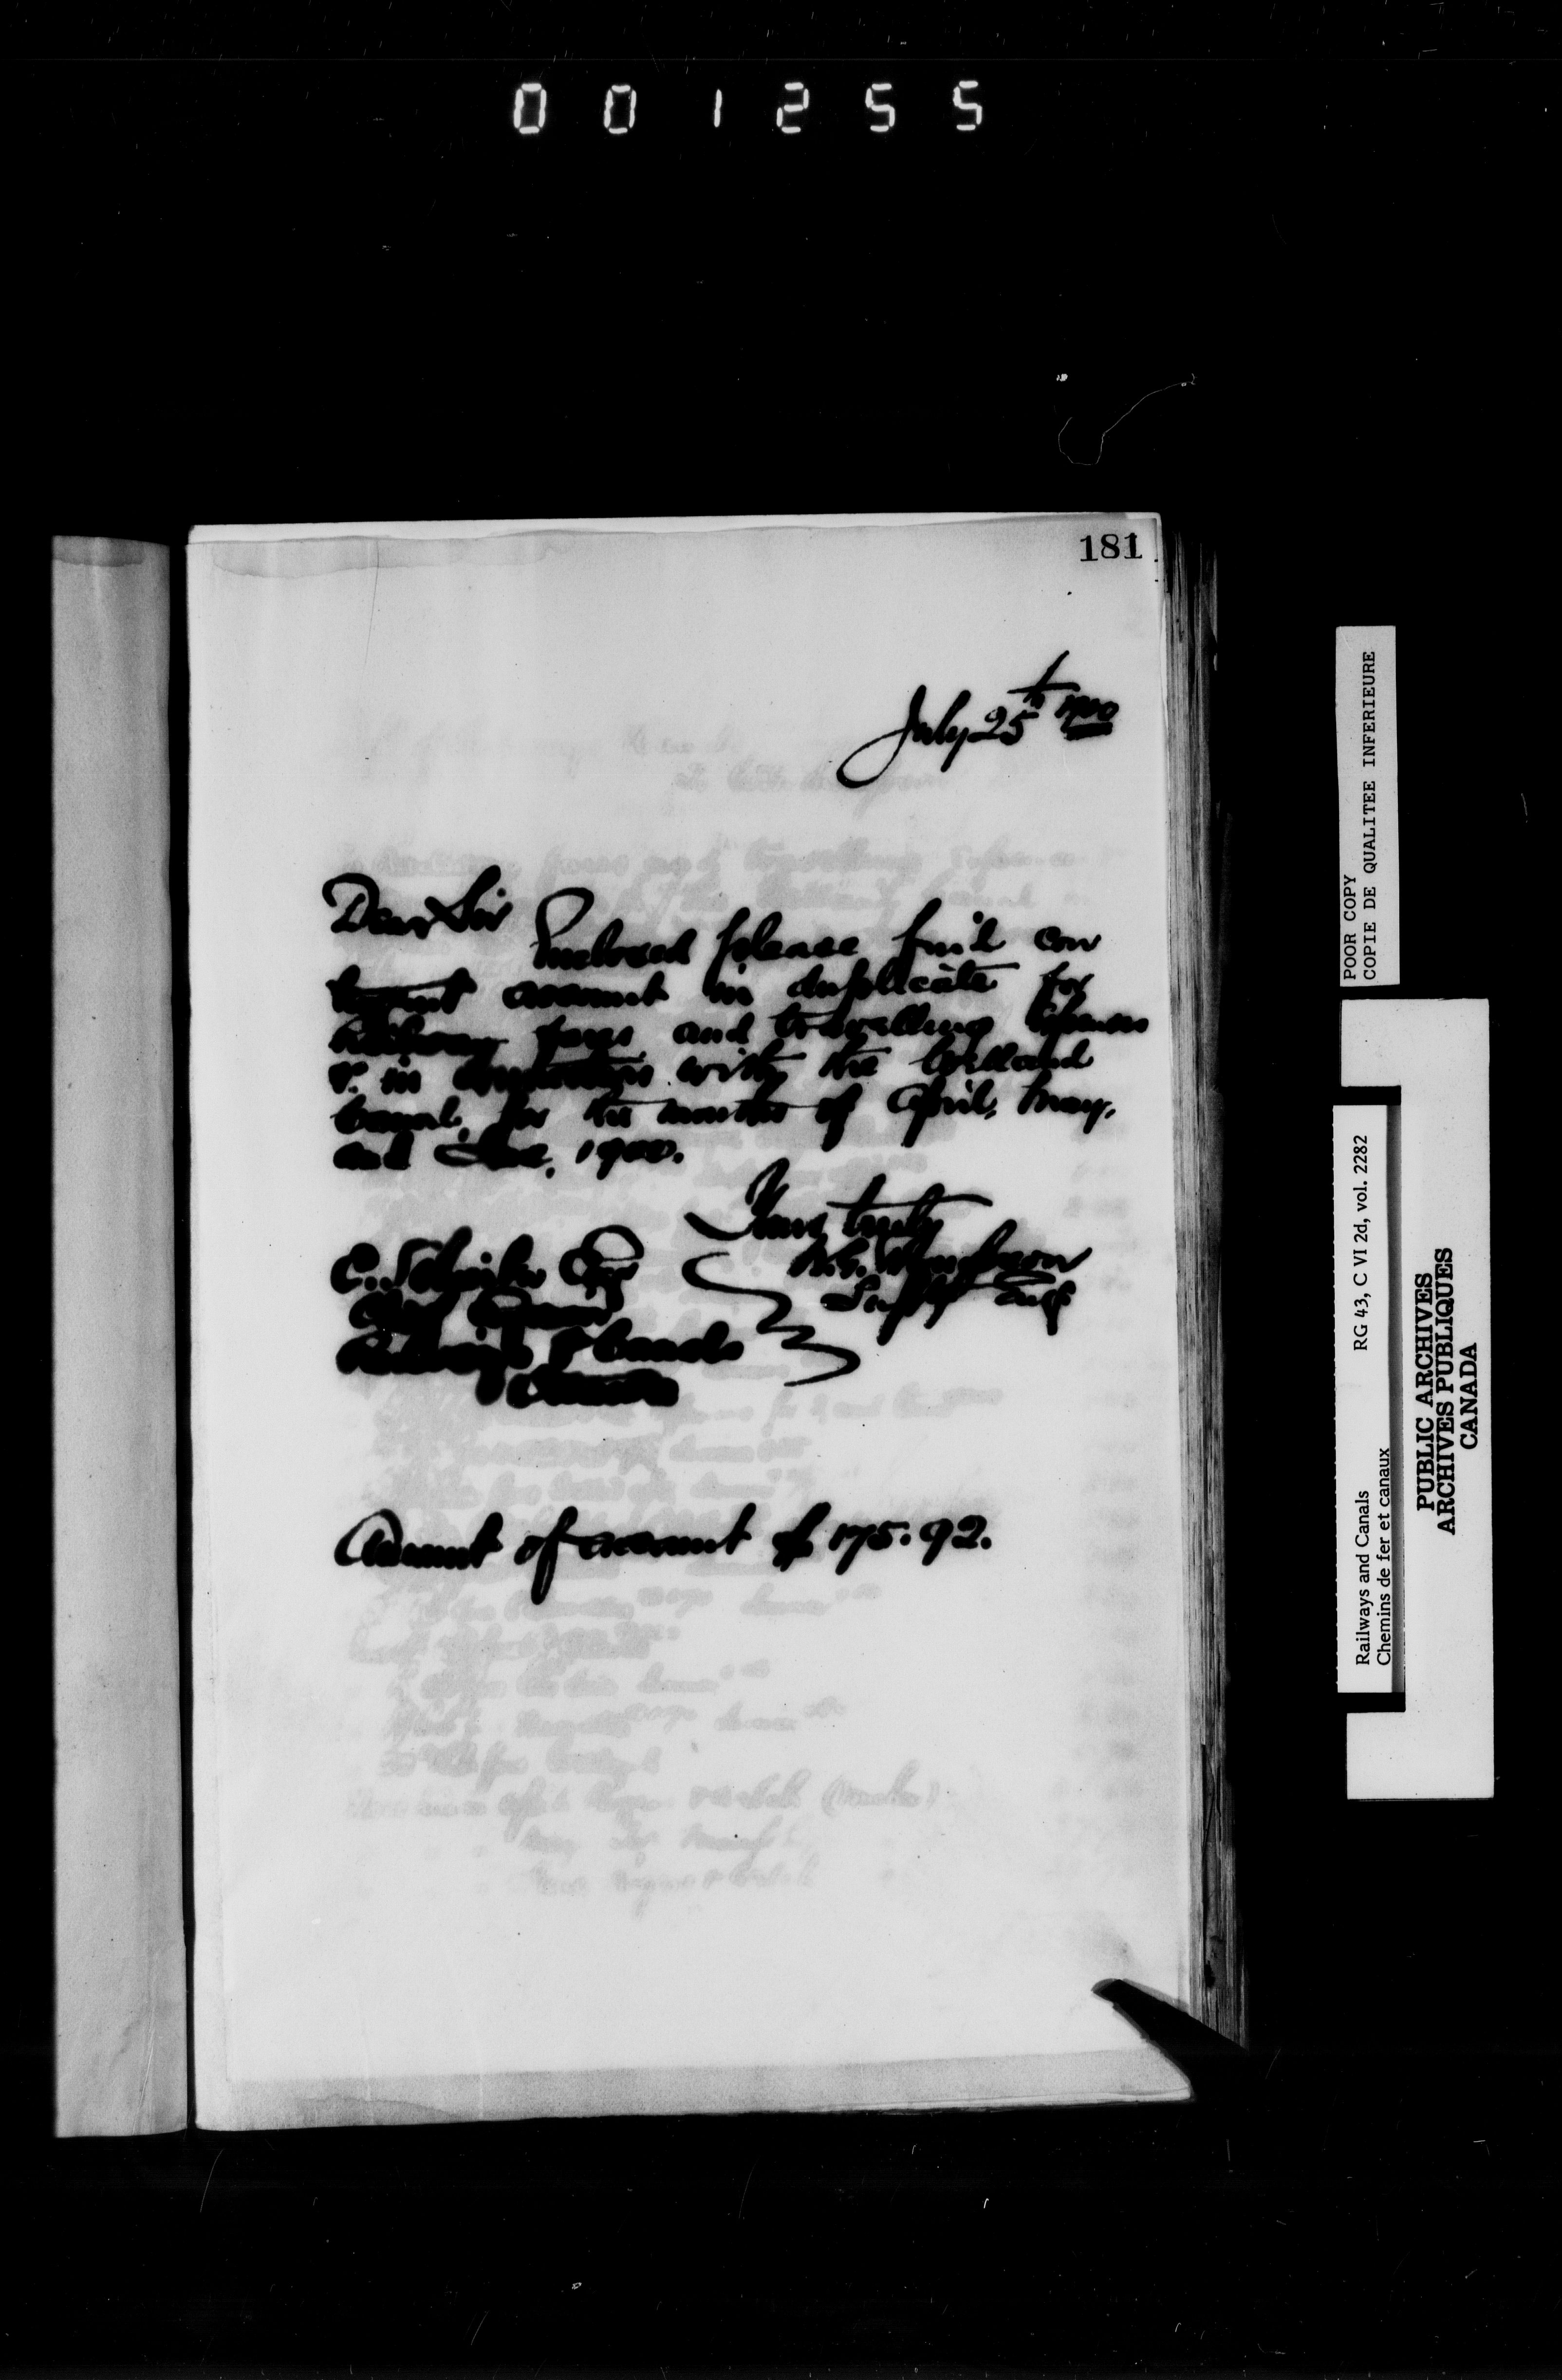 001255
181
July 25th 1900
Dear Sir
Enclosed please find con
tingent account in duplicate for
Railway fares and travelling expenses
&c in connection with the Welland
Canal, for the months of April, May,
and June, 1900.
Yours truly
W.G. Thompson
Supt Eng
C. Schreiber Esq
Chief Engineer
Railways & Canals
Ottawa
Amount of account $175.92.
POOR COPY
COPIE DE QUALITEE INFERIEURE
Railways and Canals RG 43, C VI 2d, vol. 2282
Chemins de fer et canaux
PUBLIC ARCHIVES
ARCHIVES PUBLIQUES
CANADA